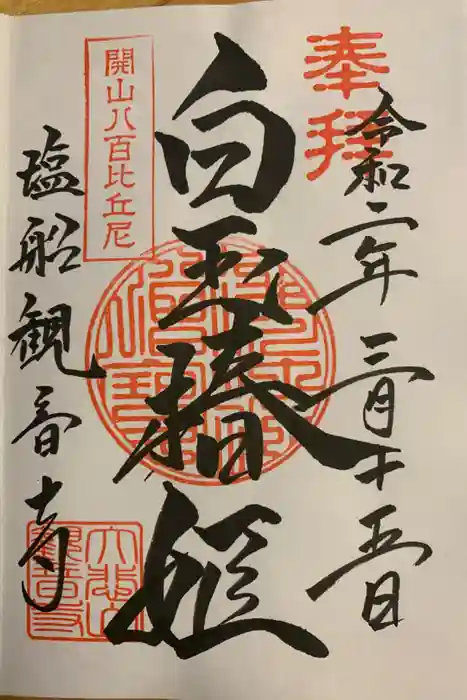 奉拝
令和二年三月十五日
白玉椿姫
開山八百比丘尼
塩船観音寺